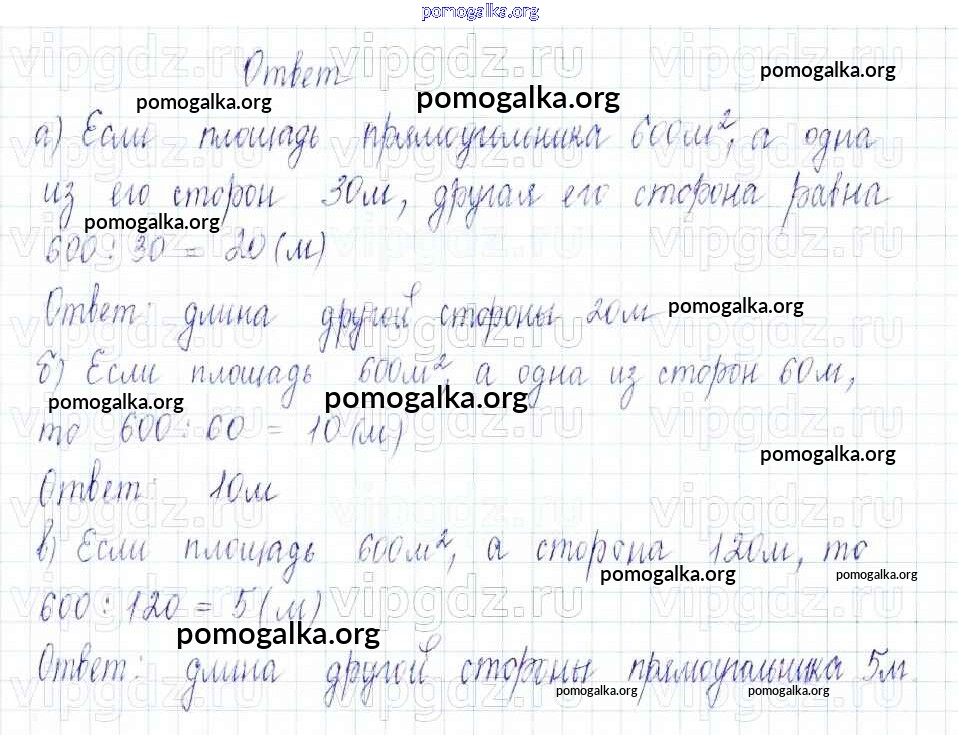 pomogalka.org
Ответ
pomogalka.org
pomogalka.org
pomogalka.org
а) Если площадь прямоугольника 600м², а одна
из его сторон 30м, другая его сторона равна
pomogalka.org
600 : 30 = 20 (м)
Ответ: длина другой стороны 20м
pomogalka.org
б) Если площадь 600м², а одна из сторон 60м,
pomogalka.org
pomogalka.org
то 600 : 60 = 10 (м)
pomogalka.org
Ответ: 10м
в) Если площадь 600м², а сторона 120м, то
pomogalka.org
pomogalka.org
600 : 120 = 5 (м)
pomogalka.org
Ответ: длина другой стороны прямоугольника 5м.
pomogalka.org
pomogalka.org
vipgdz.ru